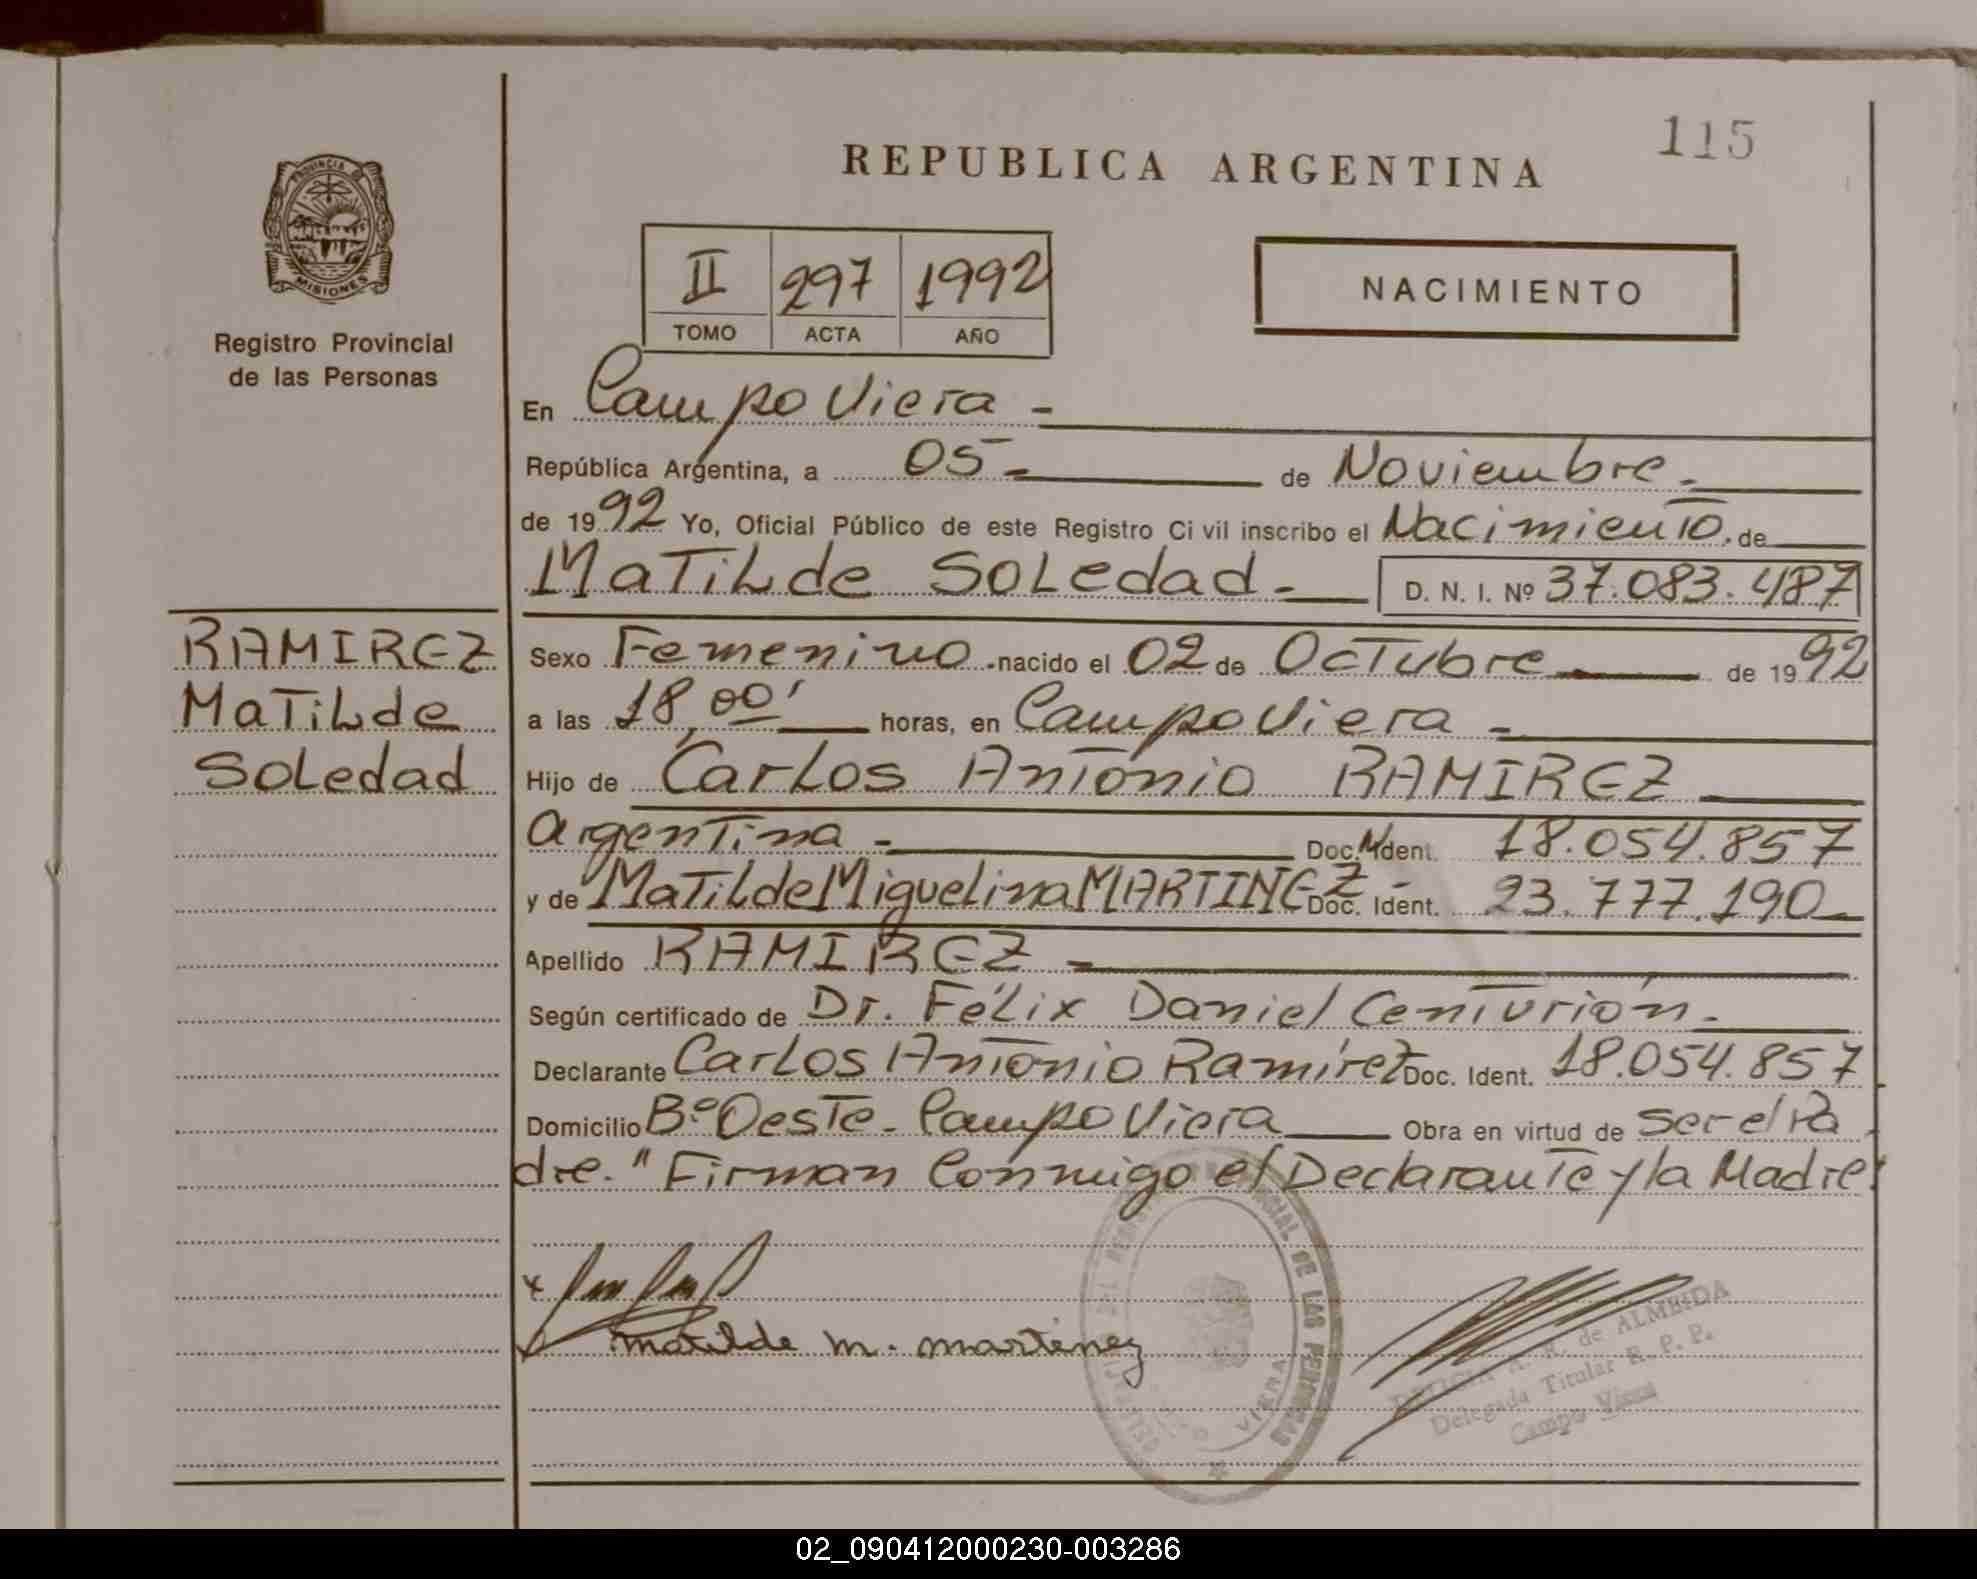 115
REPUBLICA ARGENTINA
PROVINCIA DE
MISIONES
Registro Provincial
de las Personas
II 297 1992
TOMO ACTA AÑO
NACIMIENTO
En Campo Viera -
República Argentina, a 05- de Noviembre.
de 1992 Yo, Oficial Público de este Registro Civil inscribo el Nacimiento. de
Matilde Soledad. D. N. I. Nº 37.083.487
RAMIREZ
Matilde
Soledad
Sexo Femenino. nacido el 02 de Octubre de 1992
a las 18,00' horas, en Campo Viera -
Hijo de Carlos Antonio RAMIREZ
Argentina - Doc. Ident. 18.054.857
y de Matilde Miguelina MARTINEZ - Doc. Ident. 23.777.190
Apellido RAMIREZ -
Según certificado de Dr. Félix Daniel Centurión.
Declarante Carlos Antonio Ramírez Doc. Ident. 18.054.857
Domicilio Bº Oeste- Campo Viera Obra en virtud de ser el Pa
dre. " Firman Conmigo el Declarante y la Madre.
matilde m. martinez
DE LAS PERSONAS
VIERA
de ALMEIDA
Delegada Titular R. P. P.
Campo Viera
02_090412000230-003286